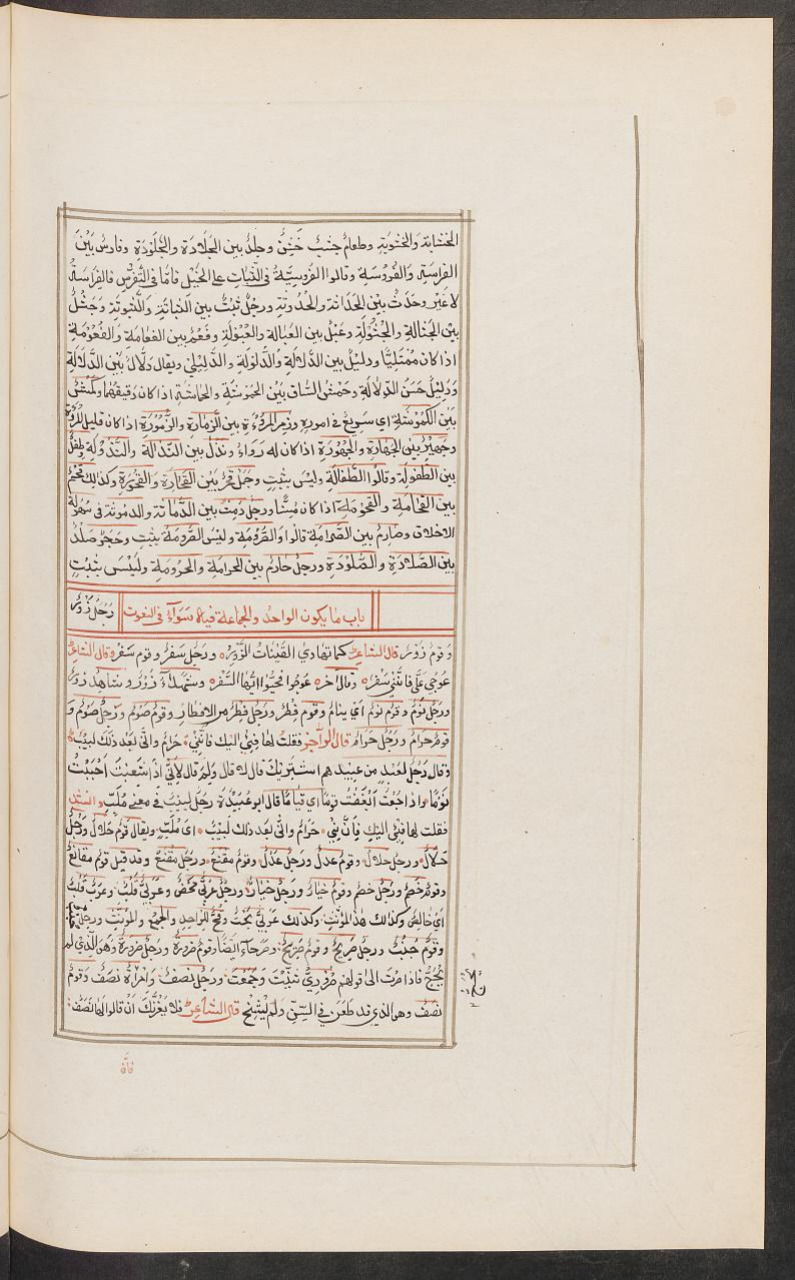 الخشابة والخشوبة وطعام جشب خشن وجلد بين الجلادة والجلودة وفارس بين
الفراسة والفروسة وقالوا الفروسيّة في الثبات على الخيل فامّا في التفرّس فالفراسة
لا غير وحدث بين الحداثة والحدوثة ورجل ثبت بين الثباتة والثبوتة وجثل
بين الجثالة والجثولة وعبل بين العبالة والعبولة وفعم بين الفعامة والفعومة
اذا كان ممتليًا ودليل بين الدلالة والدلولة والدليلي ويقال دلّال بين الدلالة
ودليل حسن الدلالة وحمش الساق بين الحموشة والحماشة اذا كان دقيقهما وكمش
بين الكموشة اي سريع في اموره وزمر المروءة بين الزمارة والزمورة اذا كان قليل المروة
وجهير بين الجهارة والجهورة اذا كان له رواء ونذل بين النذالة والنذولة وطفل
بين الطفولة وقالوا الطفالة وليس بثبت وجل قحر بين القحارة والقحورة وكذلك فخم
بين الفخامة والفخومة اذا كان مسنّا ورجل دمث بين الدماثة والدموثة في سهولة
الاخلاق وصارم بين الصرامة قالوا والصرومة وليس الصرومة بثبت وحجر صلد
بين الصلادة والصلودة ورجل حارم بين الحرامة والحرومة وليس بثبت
باب ما يكون الواحد والجماعة فيه سواء في النعوت رجل زور
وقوم زور قال الشاعر كما تهادي الفتيات الزور ورجل سفر وقوم سفر قال الشاعر
عوجي علي فانني سفر وقال اخر عوجوا فحيوا ايها السفر وشهداء زور وشاهد زور
ورجل نوم وقوم نوم اي ينام وقوم فطر ورجل فطر من الافطار وقوم صوم ورجل صوم و
قوم حرام ورجل حرام قال الراجز فقلت لها فيئي اليك فانني حرام واني بعد ذلك لبيب
وقال رجل لعبد من عبيدهم اشتريك قال لا قال ولم قال لاني اذا شبعت احببت
نوما واذا جعت ابغضت قوما اي قياما قال ابو عبيدة رجل لبيب في معنى ملبّ وانشد
فقلت لها فيئي اليك فانني حرام واني بعد ذلك لبيب اي ملبّ ويقال قوم حلال ورجل
حلال ورجل حلال وقوم عدل ورجل عدل وقوم مقنع ورجل مقنع وقد قيل قوم مقانع
وقوم خصم ورجل خصم وقوم خيار ورجل خيار ورجل عربي محض وعربي قلب وعرب قلب
اي خالص وكذلك هذا المؤنث وكذلك عربي بحت وقح للواحد والجمع والمؤنث ورجل جنب
وقوم جنب ورجل صريح وقوم صريح وصرحاء ايضا وقوم صرورة ورجل صرورة وهو الذي لم
يحجج فاذا صرت الى قولهم صروري ثنيت وجمعت ورجل نصف وامراة نصف وقوم
نصف وهو الذي قد طعن في السن ولم يشخ قال الشاعر فلا يغرنك ان قالوا لها نصف
فان